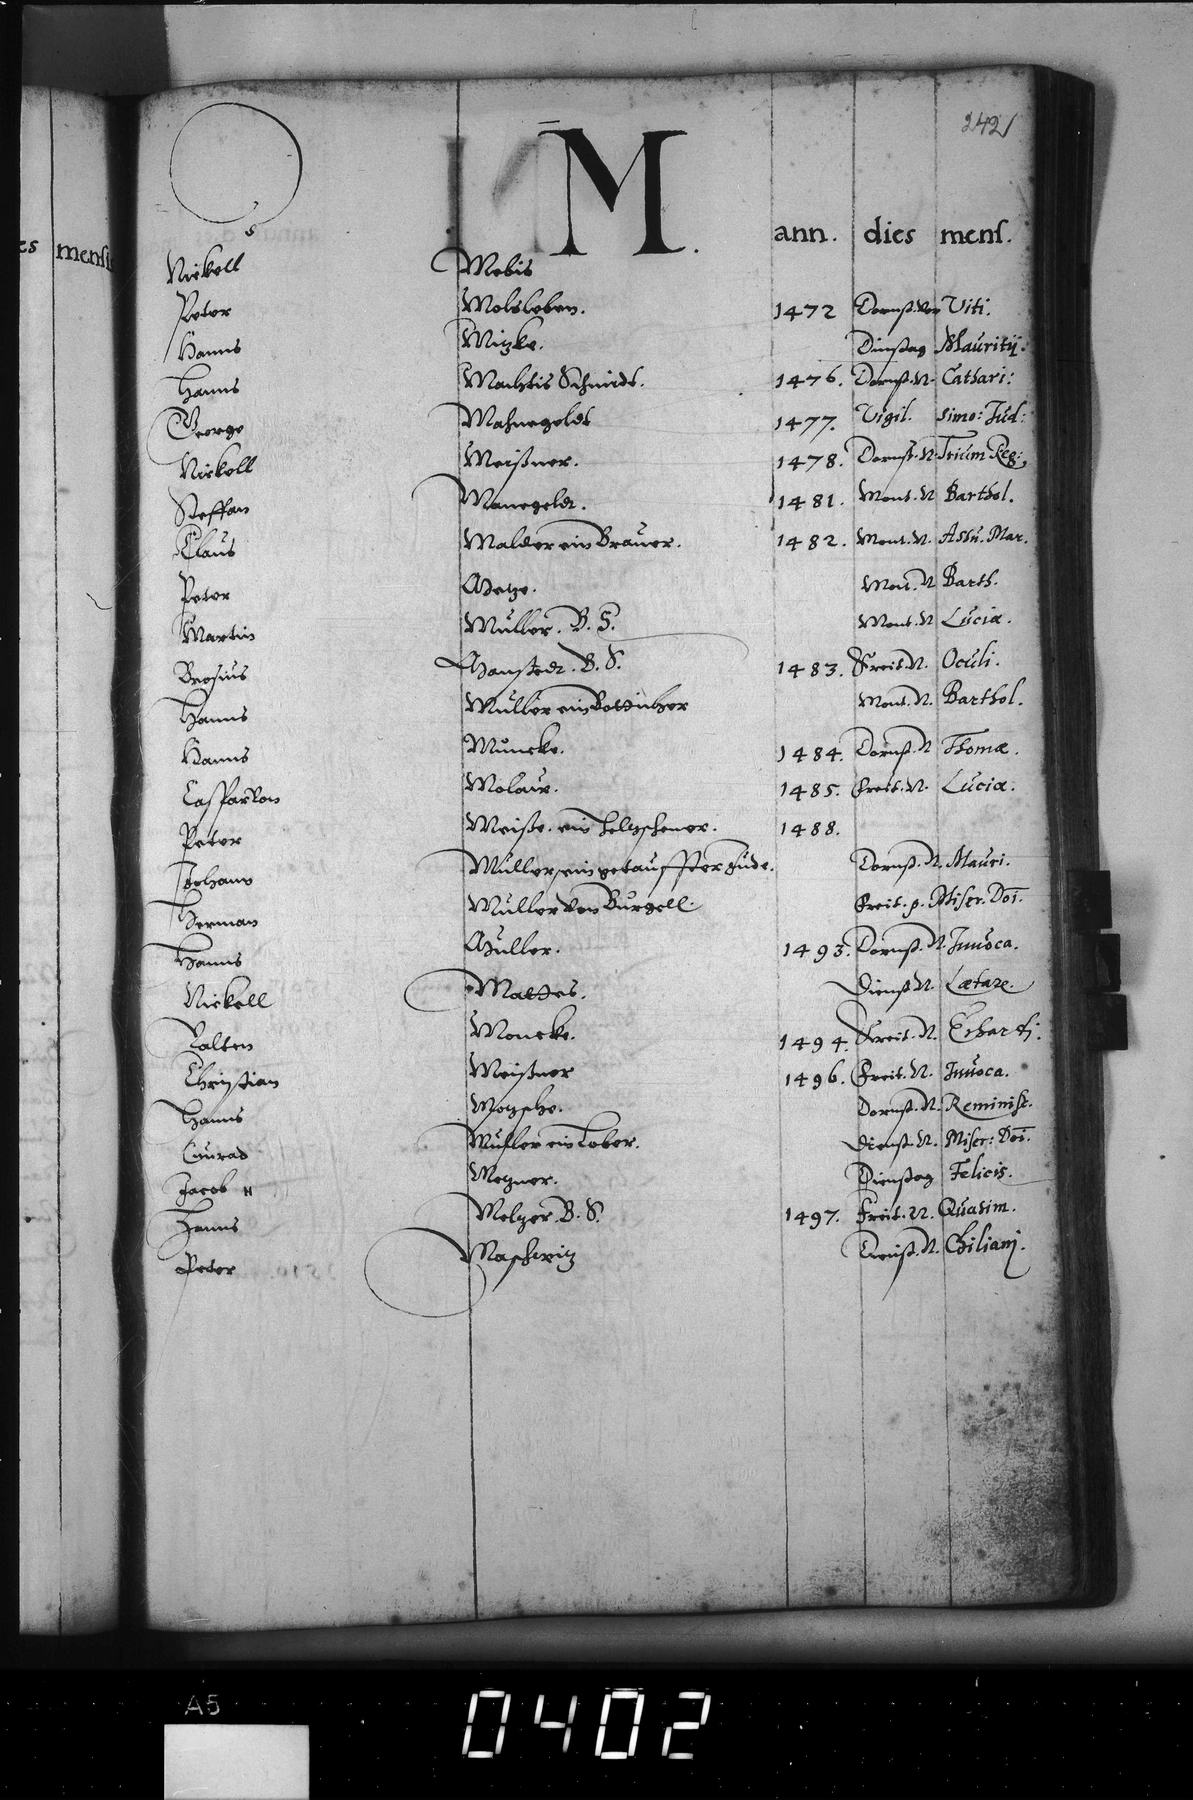 242
M.
ann. dies mens.
es mensis
Nickell Mebis
Peter Molsleben. 1472 Dornst. vor Viti.
Hanns Mitzke. Dinstag Mauritij.
Hanns Machtis Schmids. 1476. Dornst. N. Cathari:
George Mahnegoldt 1477. Vigil. Simo: Jud:
Nickell Meißner. 1478. Dornst. N. Trium Reg:
Steffan Manegoldt. 1481. Mont. N Barthol.
Claus Malder ein Brauer. 1482. Mont. N. Assu. Mar.
Peter Metze. Mont. N Barth.
Martin Müller. B. S. Mont. N Luciæ.
Brosius Manstedt. B. S. 1483. Freit. N. Oculi.
Hanns Müller ein Botticher Mont. N. Barthol.
Hanns Müncke. 1484. Dornst. N Thomæ.
Casspar von Molaw. 1485. Freit. N. Luciæ.
Peter Meiße. ein 1488.
Johann Müller, ein Dornst. N. Mauri.
Herman Müller von Burgell. Freit. p. Miser. Doi.
Hanns Müller. 1493. Dornst. N. Invoca.
Nickell Mattes. Dienst. N. Lætare.
Valten Moncke. 1494. Freit. N. Erhartj.
Christian Meißner 1496. Freit. N. Invoca.
Hanns Motzsche. Dornst. N. Reminisc.
Cunrad Müller ein Lober. Dienst. N. Miser: Doi.
Jacob Metzner. Dienstag Felicis.
Hanns Meltzer. B. S. 1497. Freit. N. Quasim.
Peter Maschwitz Dienst. N. Chilianj.
A5
0402